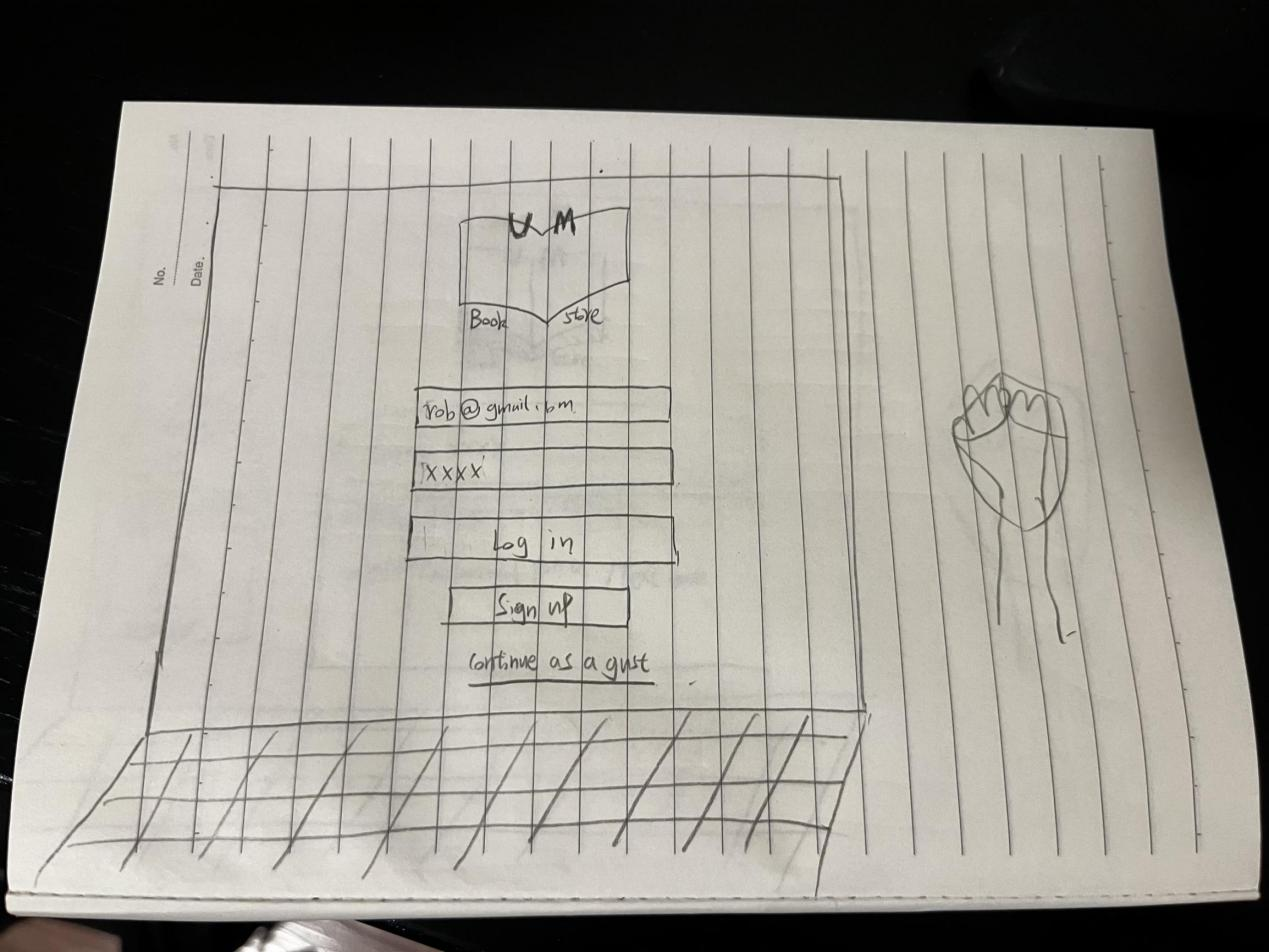 No.
Date.
U M
Book Store
rob@gmail.com
xxxx
Log in
Sign up
continue as a gust